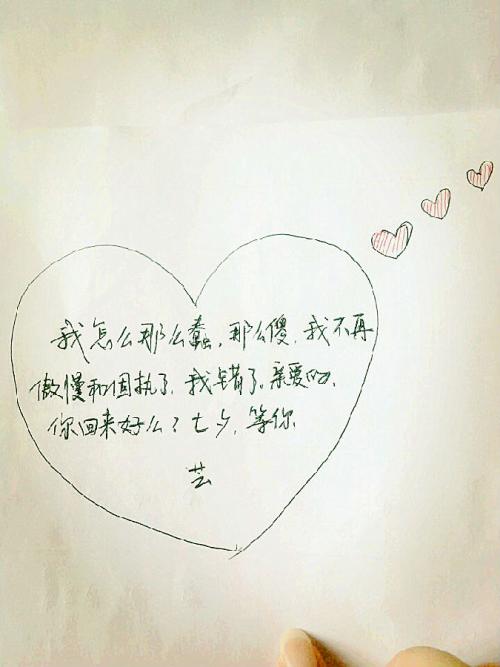 我怎么那么蠢，那么傻，我不再
傲慢和固执了，我错了，亲爱的，
你回来好么？七夕，等你
芸